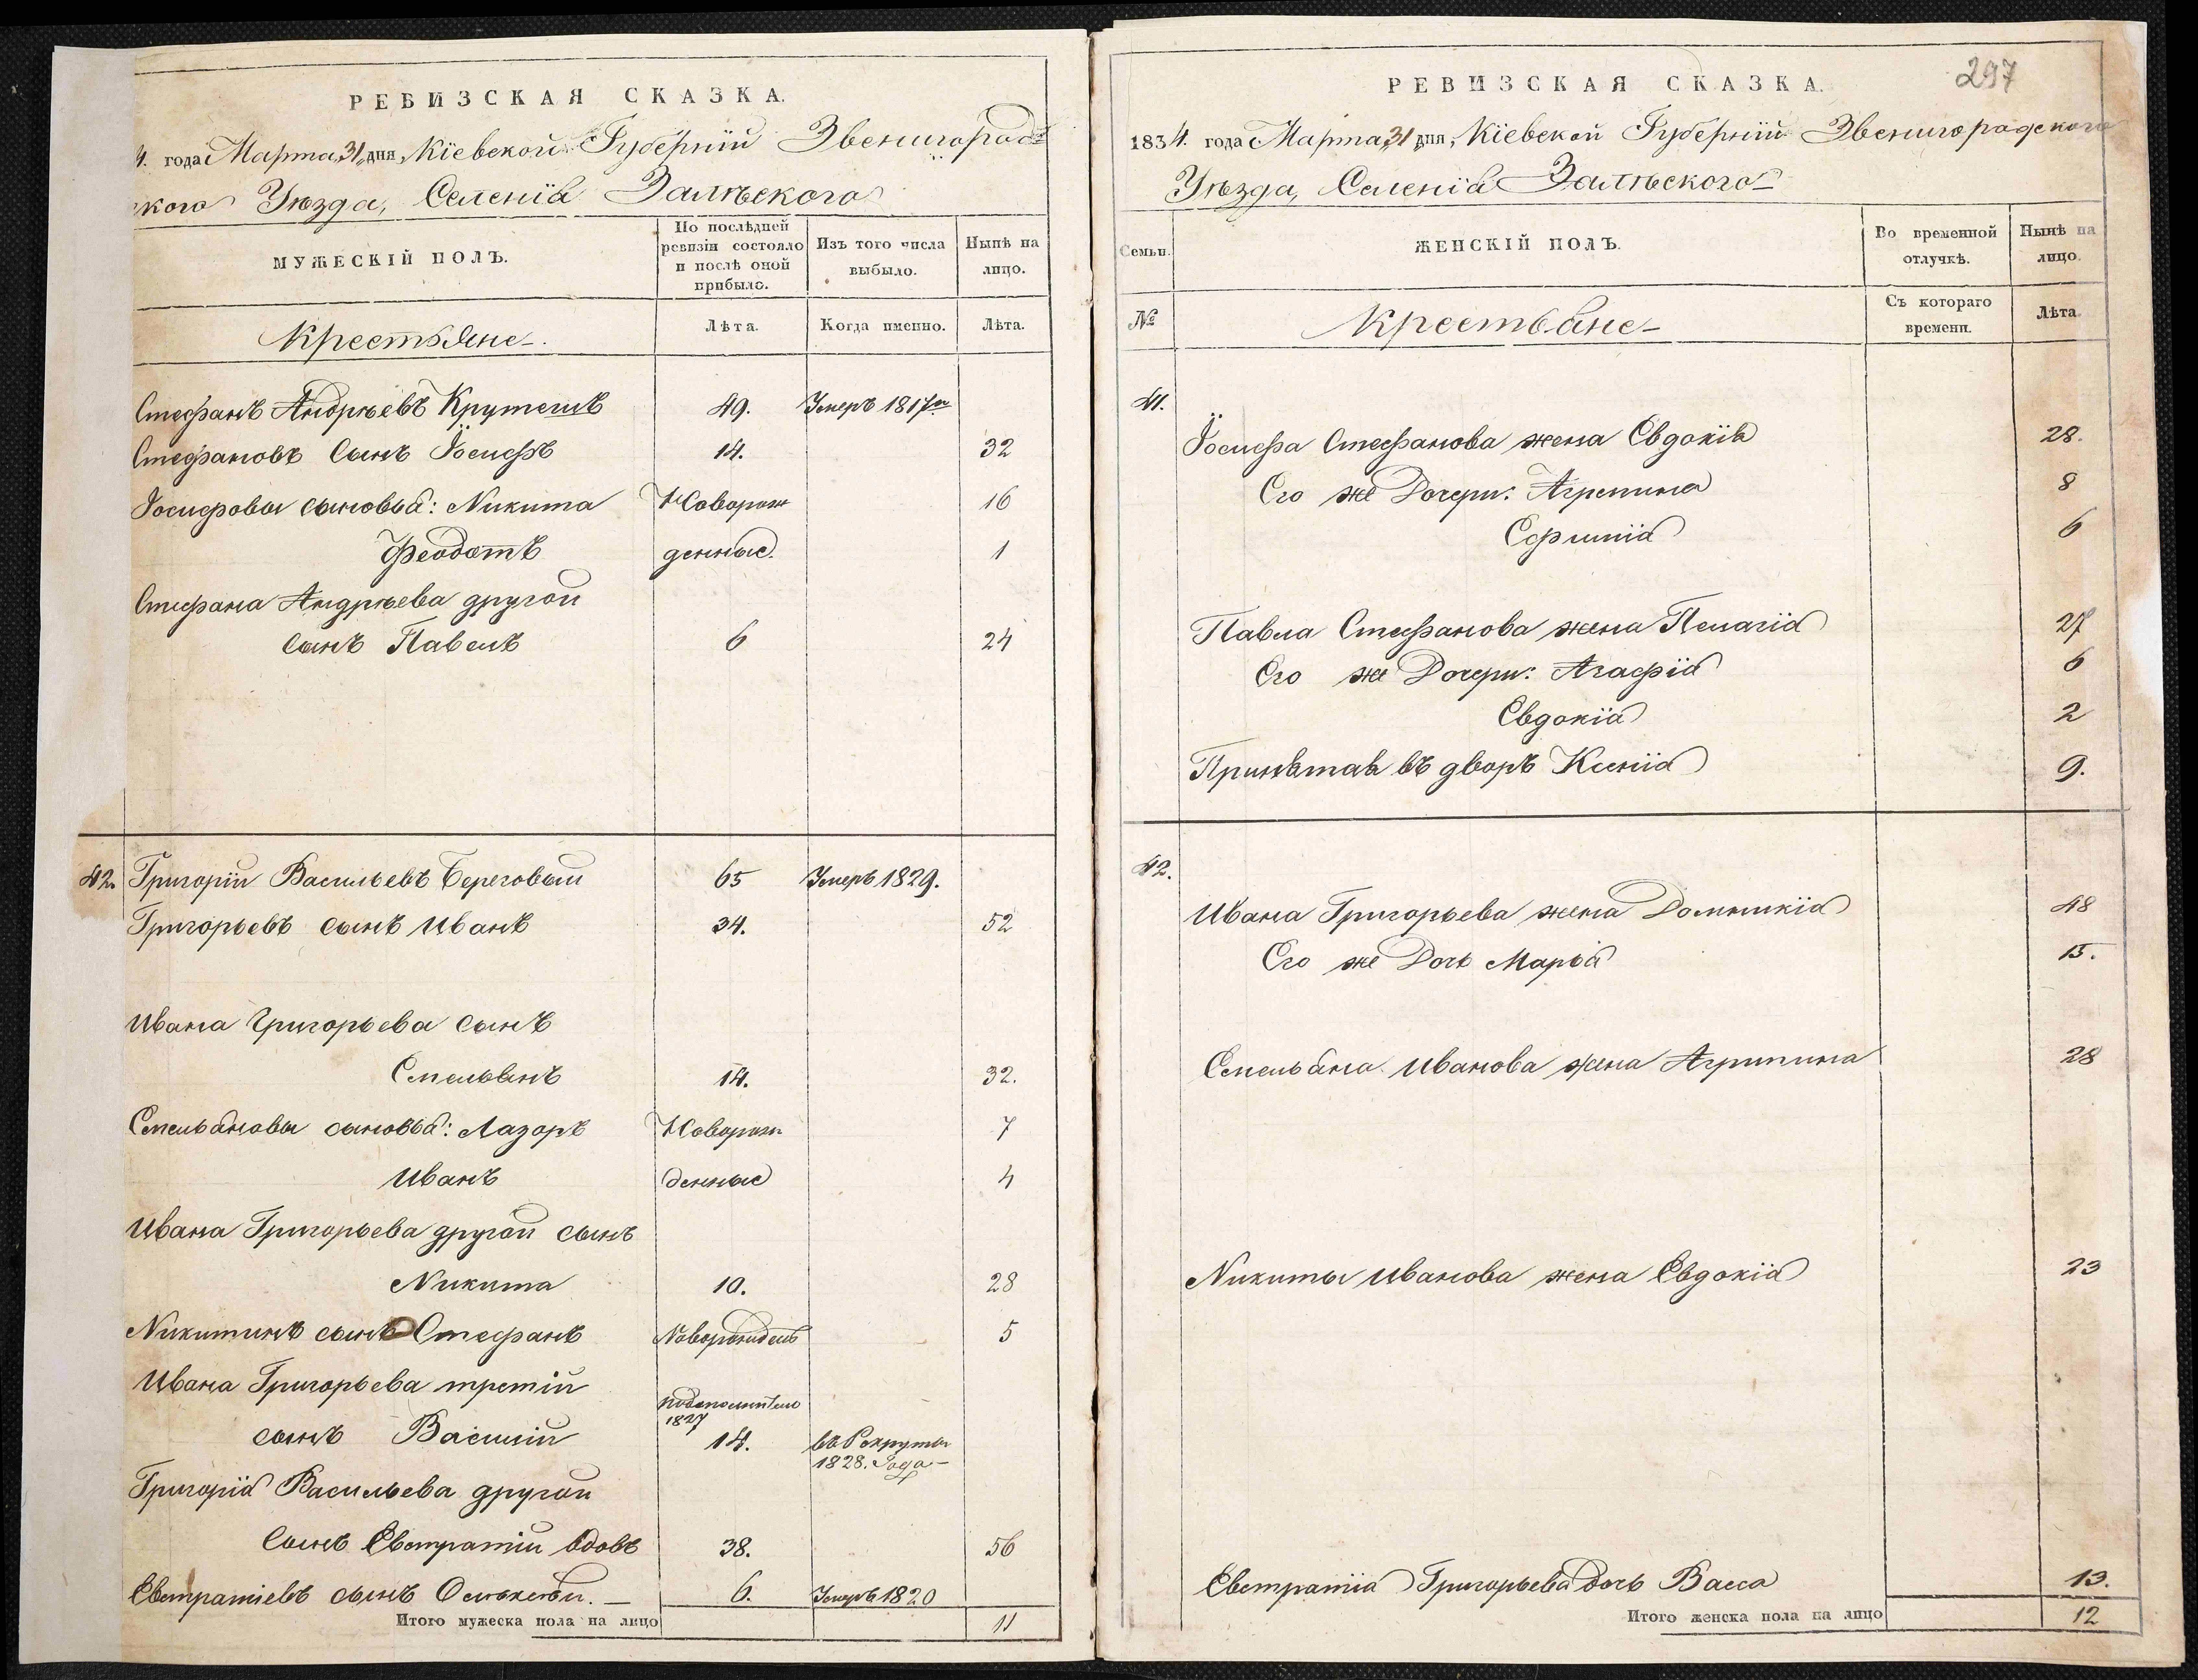 РЕВИЗСКАЯ СКАЗКА.
4. года Марта 31 дня, Кіевской Губерніи Звенигород
ского Уѣзда, Селенія Залѣского
МУЖЕСКІЙ ПОЛЪ.
По послѣдней ревизіи состояло и послѣ оной прибыло.
Изъ того числа выбыло.
Нынѣ на лицо.
Крестьяне
Лѣта.
Когда именно.
Лѣта.
Стефанъ Андрѣевъ 49. Умеръ 1817го
Стефановъ Сынъ Іосифъ 14. 32
Іосифовы сыновья: Никита Новорож 16
Феодотъ денные. 1
Стефана Андрѣева другой
сынъ Павелъ 6 24
42. Григорій Васильевъ Береговый 65 Умеръ 1829.
Григорьевъ сынъ Иванъ 34. 52
Ивана Григорьева сынъ
Емельянъ 14. 32.
Емельяновы сыновья: Лазоръ Новорож 7
Иванъ денные 4
Ивана Григорьева другой сынъ
Никита 10. 28
Никитинъ сынъ Стефанъ Новорожденъ 5
Ивана Григорьева третій
1827
сынъ Василій 14. въ Рекруты
1828. Года
Григорія Васильева другой
Сынъ Евстратій вдовъ 38. 56
Евстратіевъ сынъ 6. Умеръ 1820
Итого мужеска пола на лицо 11
297
РЕВИЗСКАЯ СКАЗКА.
1834. года Марта 31 дня, Кіевской Губерніи Звенигородского
Уѣзда, Селенія Залѣского
Семьи.
ЖЕНСКІЙ ПОЛЪ.
Во временной отлучкѣ.
Нынѣ на лицо.
№
Крестьяне
Съ котораго времени.
Лѣта.
41.
Іосифа Стефанова жена Евдокія 28.
Его же Дочери: Агрепина 8
Ефимія 6
Павла Стефанова жена Пелагія 27
Его же Дочери: Агафія 6
Евдокія 2
Принятая въ дворъ Ксенія 9.
42.
Ивана Григорьева жена Домникія 48
Его же Дочь Марья 15.
Емельяна Иванова жена Агрипина 28
Никиты Иванова жена Евдокія 23
Евстратія Григорьева дочь Васса 13.
Итого женска пола на лицо 12